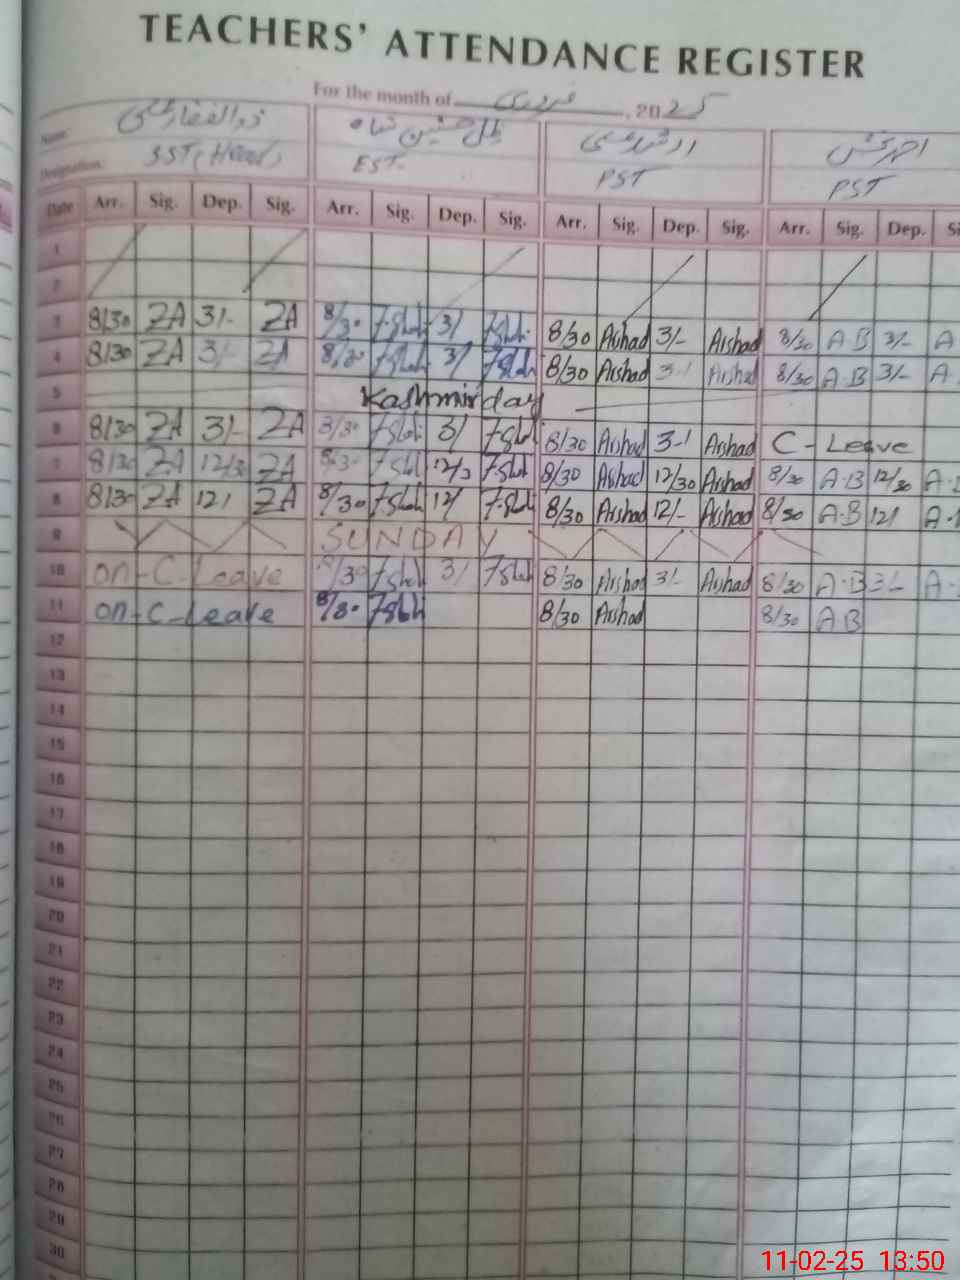 TEACHERS' ATTENDANCE REGISTER
For the month of فروری, 2025
Name: ذوالفقار علی ظل حسنین شاہ ارشد علی احمد بخش
Designation: SST (Head) EST. PST PST
Date Arr. Sig. Dep. Sig. Arr. Sig. Dep. Sig. Arr. Sig. Dep. Sig. Arr. Sig. Dep. Si
1
2
3 8/30 ZA 3/- ZA 8/30 3/ 8/30 Arshad 3/- Arshad 8/30 A.B 3/- A
4 8/30 ZA 3/- ZA 8/30 3/ 8/30 Arshad 3-1 Arshad 8/30 A.B 3/- A.
5 Kashmir day
6 8/30 ZA 3/- ZA 8/30 3/ 8/30 Arshad 3-1 Arshad C - Leave
7 8/30 ZA 12/30 ZA 8/30 12/3 8/30 Arshad 12/30 Arshad 8/30 A.B 12/30 A.
8 8/30 ZA 12/ ZA 8/30 12/ 8/30 Arshad 12/- Arshad 8/30 A.B 12/ A.
9 SUNDAY
10 on-C-Leave 8/30 3/ 8/30 Arshad 3/- Arshad 8/30 A.B 3/- A.
11 on-C-Leave 8/30 8/30 Arshad 8/30 AB
12
13
14
15
16
17
18
19
20
21
22
23
24
25
26
27
28
29
30
11-02-25 13:50